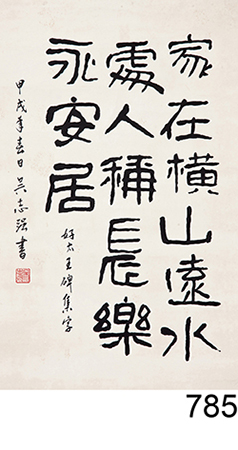 家在橫山遠水
處人稱長樂
永安居
好太王碑集字
甲戌年春日吴志强書
785